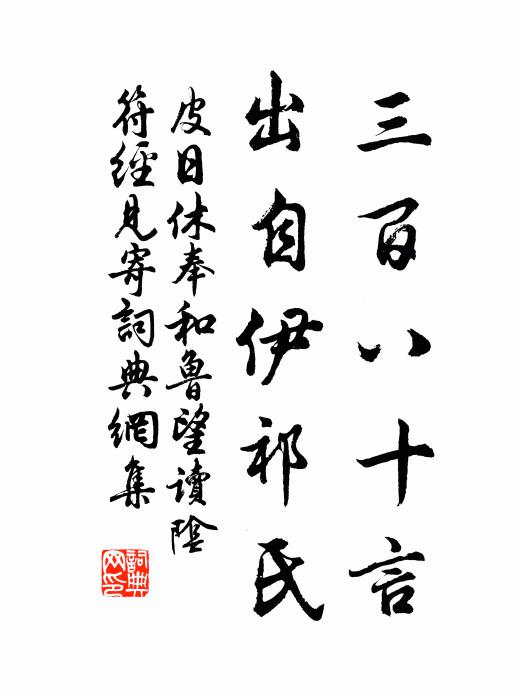 三百八十言
出自伊祁氏
皮日休奉和魯望讀陰
符經見寄詞典網集
詞典網印